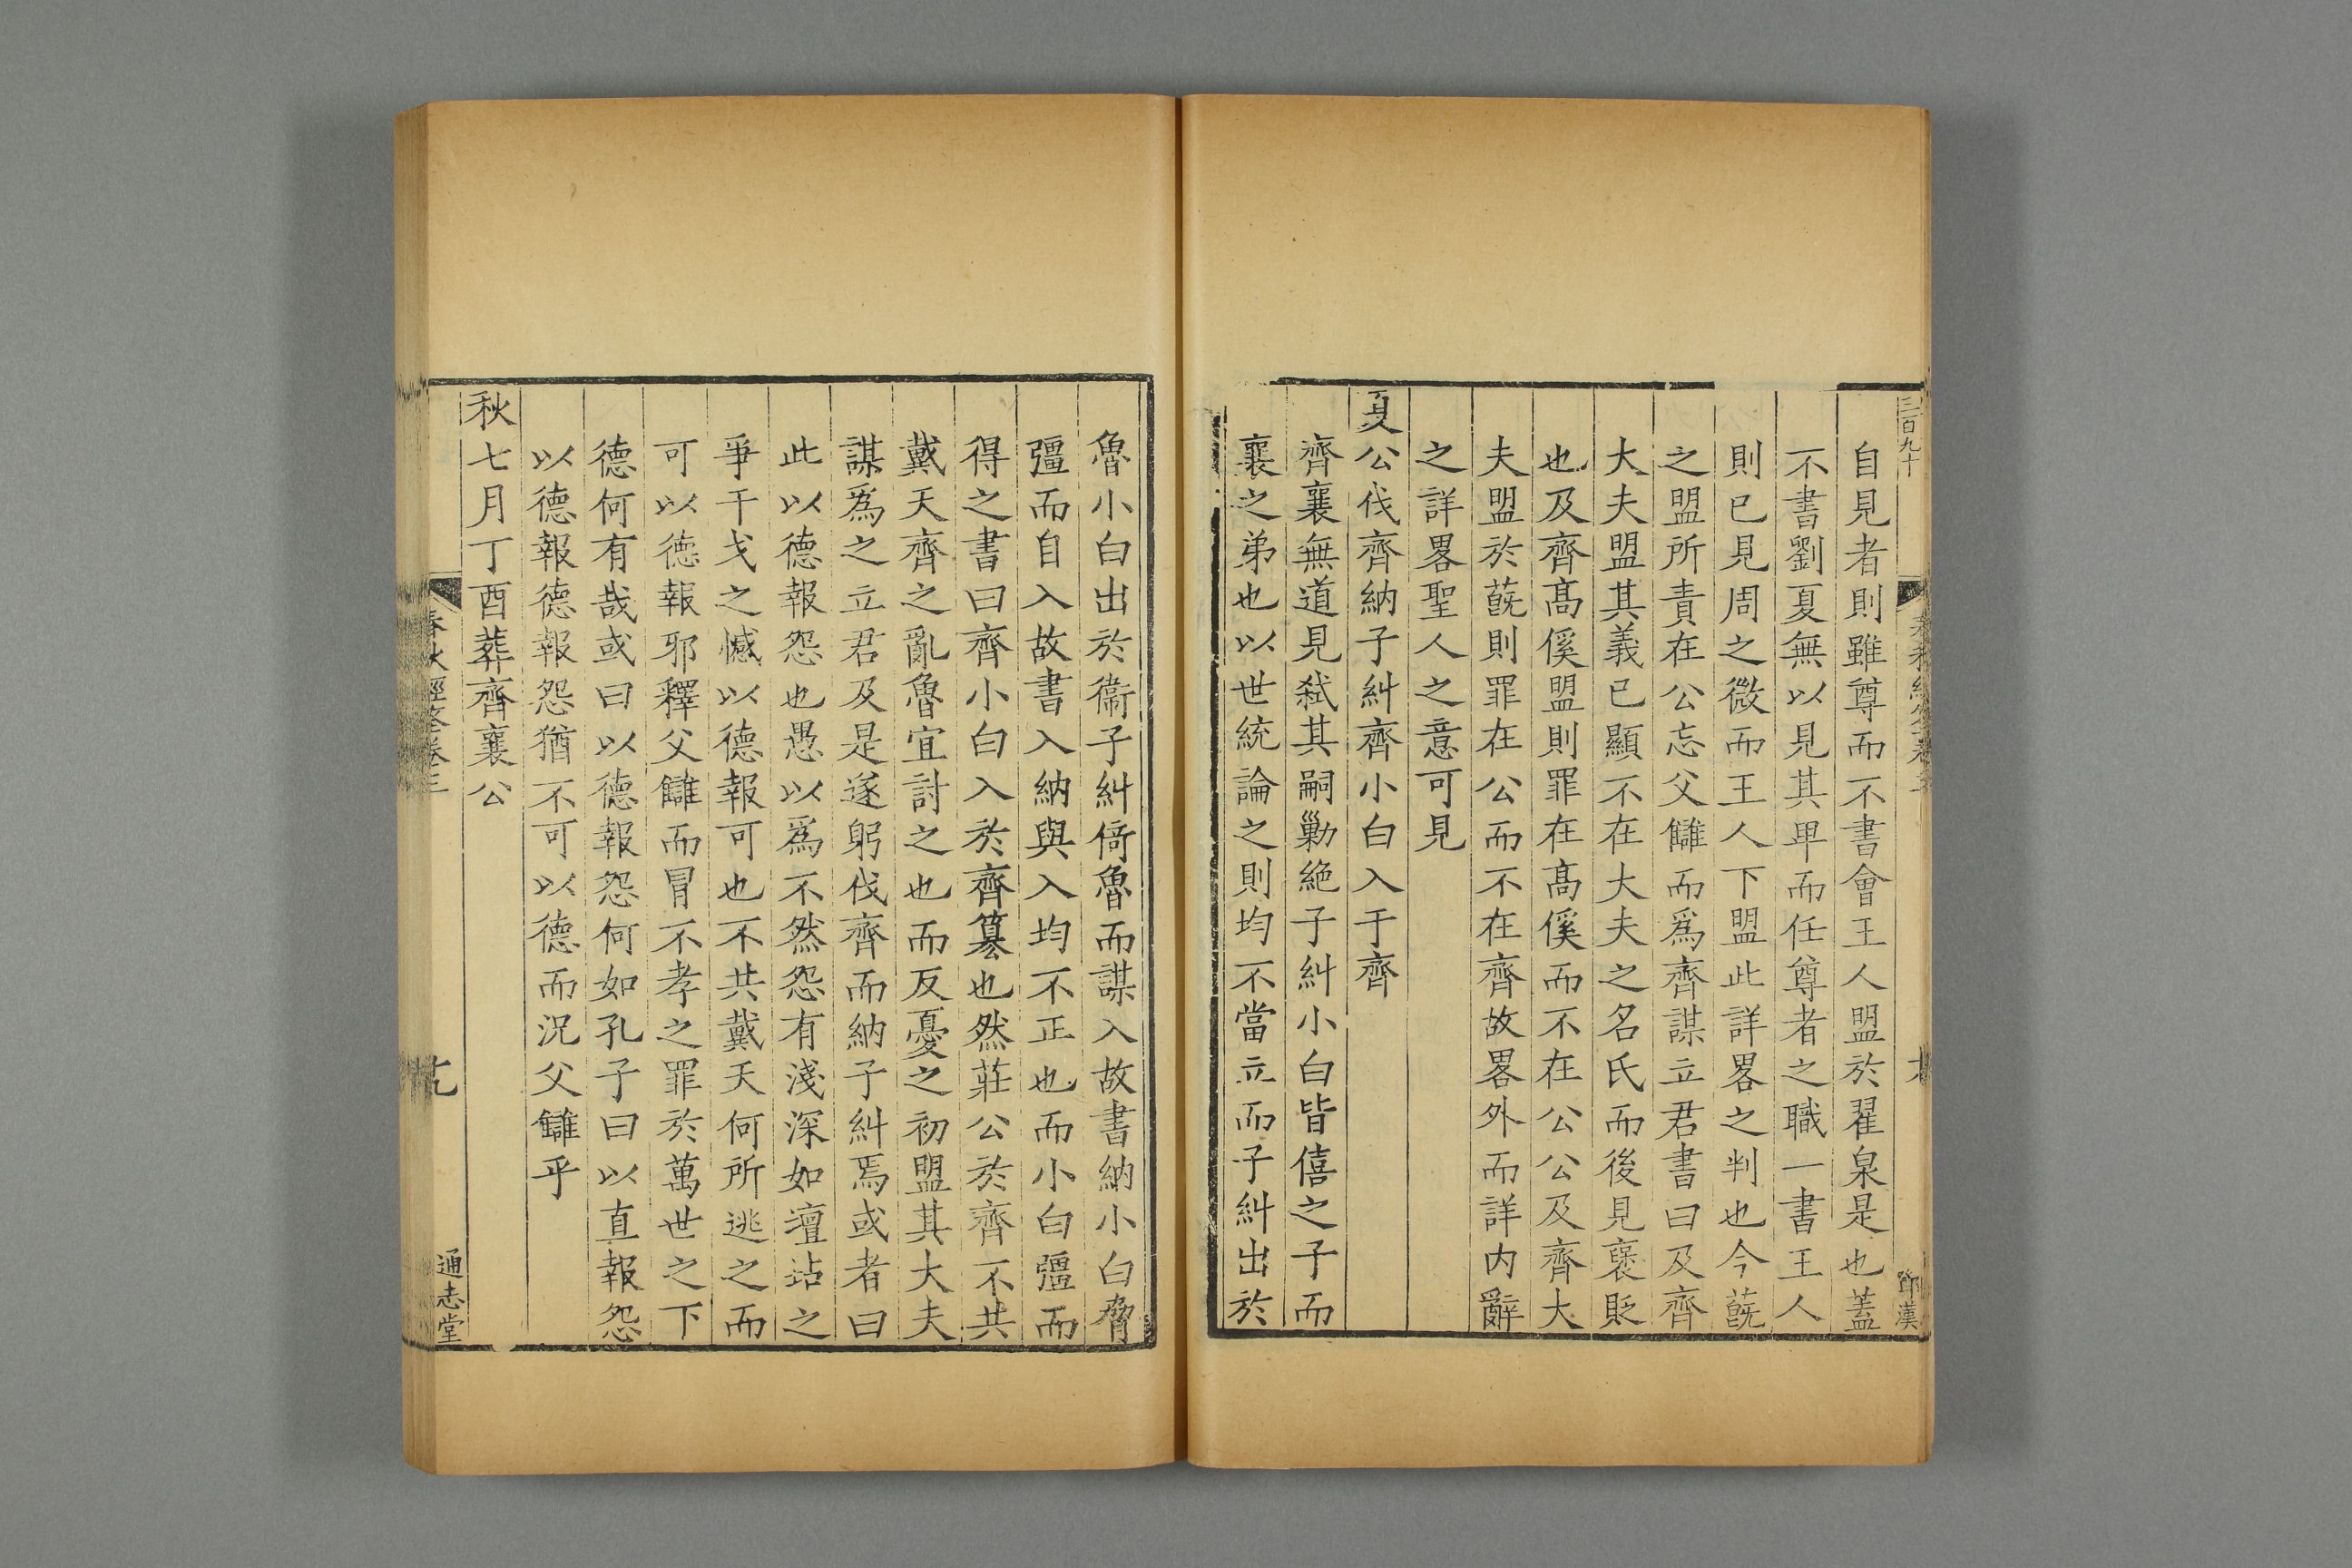 三百九十
鄧漢
自見者則雖尊而不書會王人盟於翟泉是也蓋
不書劉夏無以見其卑而任尊者之職一書王人
則已見周之微而王人下盟此詳畧之判也今蓺
之盟所責在公忘父讎而爲齊謀立君書曰及齊
大夫盟其義已顯不在大夫之名氏而後見襃貶
也及齊高傒盟則罪在高傒而不在公公及齊大
夫盟於蔇則罪在公而不在齊故畧外而詳内辭
之詳畧聖人之意可見
夏公伐齊納子糾齊小白入于齊
齊襄無道見弑其嗣勦絶子糾小白皆僖之子而
襄之弟也以世統論之則均不當立而子糾出於
魯小白出於衞子糾倚魯而謀入故書納小白脅
彊而自入故書入納與入均不正也而小白彊而
得之書曰齊小白入於齊簒也然莊公於齊不共
戴天齊之亂魯宜討之也而反憂之初盟其大夫
謀爲之立君及是遂躬伐齊而納子糾焉或者曰
此以德報怨也愚以爲不然怨有淺深如壇坫之
爭干戈之憾以德報可也不共戴天何所逃之而
可以德報邪釋父讎而冒不孝之罪於萬世之下
德何有哉或曰以德報怨何如孔子曰以直報怨
以德報德報怨猶不可以德而況父讎乎
秋七月丁酉葬齊襄公
春秋經筌卷三
通志堂